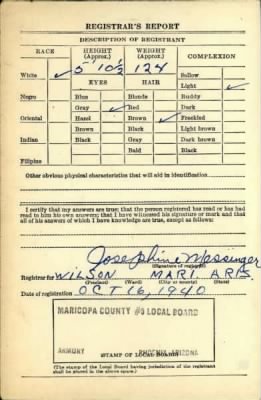 REGISTRAR'S REPORT
DESCRIPTION OF REGISTRANT
RACE HEIGHT (Approx.) WEIGHT (Approx.) COMPLEXION
White ✓ 5' 10½ 124 Sallow
EYES HAIR Light ✓
Negro Blue Blonde Ruddy
Gray ✓ Red Dark
Oriental Hazel Brown ✓ Freckled
Brown Black Light brown
Indian Black Gray Dark brown
Bald Black
Filipino
Other obvious physical characteristics that will aid in identification
I certify that my answers are true; that the person registered has read or has had
read to him his own answers; that I have witnessed his signature or mark and that
all of his answers of which I have knowledge are true, except as follows:
Josephine Messinger
(Signature of registrar)
Registrar for WILSON MARI. ARIS.
(Precinct) (Ward) (City or county) (State)
Date of registration OCT 16, 1940
MARICOPA COUNTY #5 LOCAL BOARD
ARMORY PHOENIX, ARIZONA
STAMP OF LOCAL BOARD
(The stamp of the Local Board having jurisdiction of the registrant
shall be placed in the above space.)